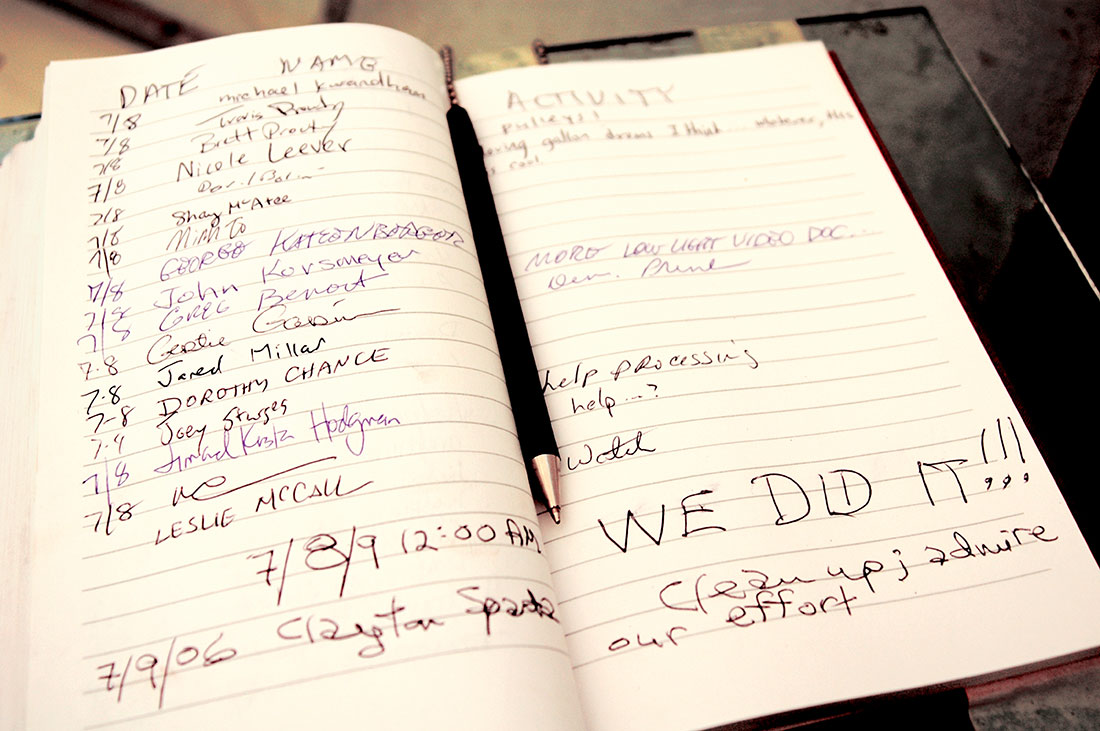 DATE NAME
7/8 michael
7/8 Travis Prouty
7/8 Brett Prouty
7/8 Nicole Leever
7/8
7/8 Shay McAtee
7/8 Minh To
7/8 GEORGE
7/8 John Korsmeyer
7/8 GREG Benoit
7-8
7-8 Jared Millar
7-8 DOROTHY CHANCE
Joey Sturges
7/8 Hodgman
7/8
LESLIE MCCALL
7/8/9 12:00 AM
7/9/06 Clayton
ACTIVITY
pulleys!
gallon drums I think... whatever, this
is cool
MORE LOW LIGHT VIDEO DOC...
help processing
help...?
WE DID IT!!!
Clean up; admire
our effort